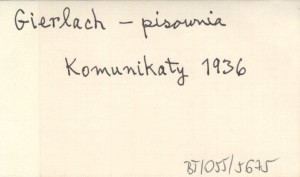 Gierlach – pisownia
Komunikaty 1936
BJ/055/5675